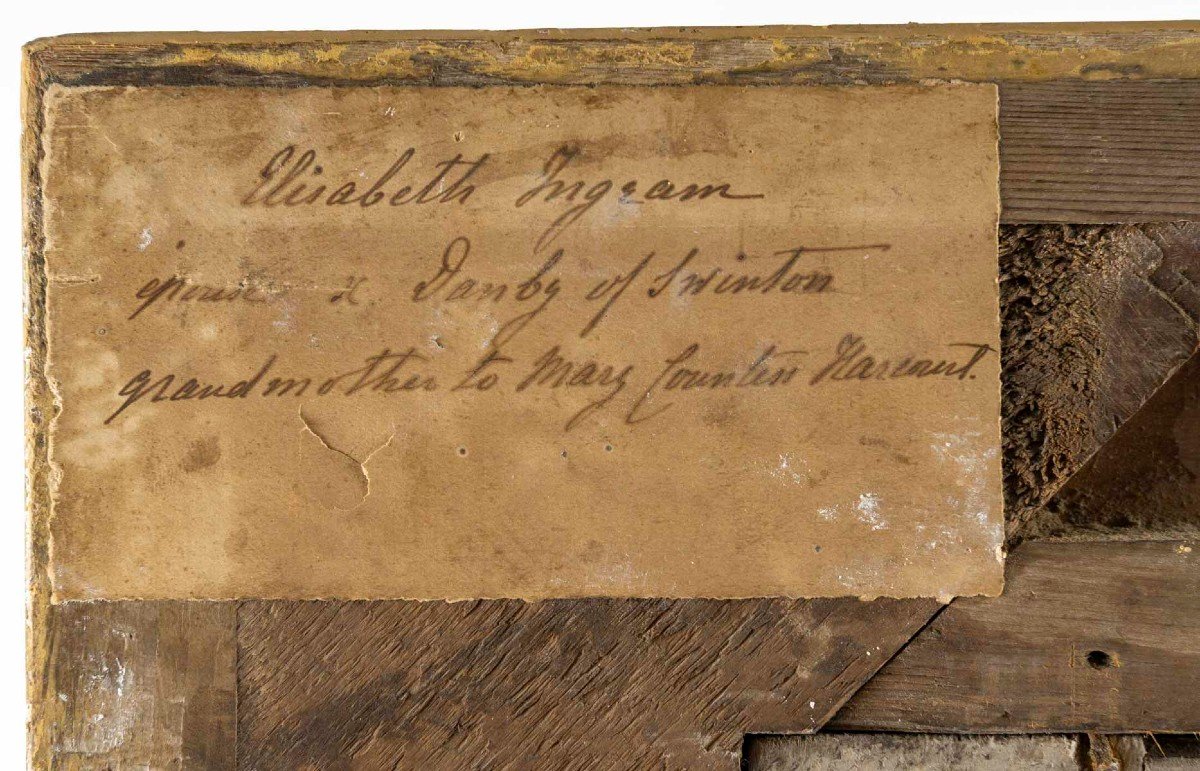 Elisabeth Ingram
Danby of Swinton
grandmother to Mary Countess Harcourt.